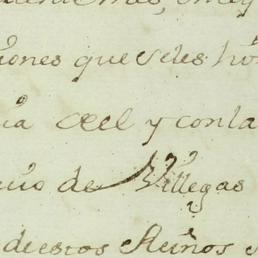 iones que seles ho
ia ael y conla
cuio de Villegas
de estos Reinos